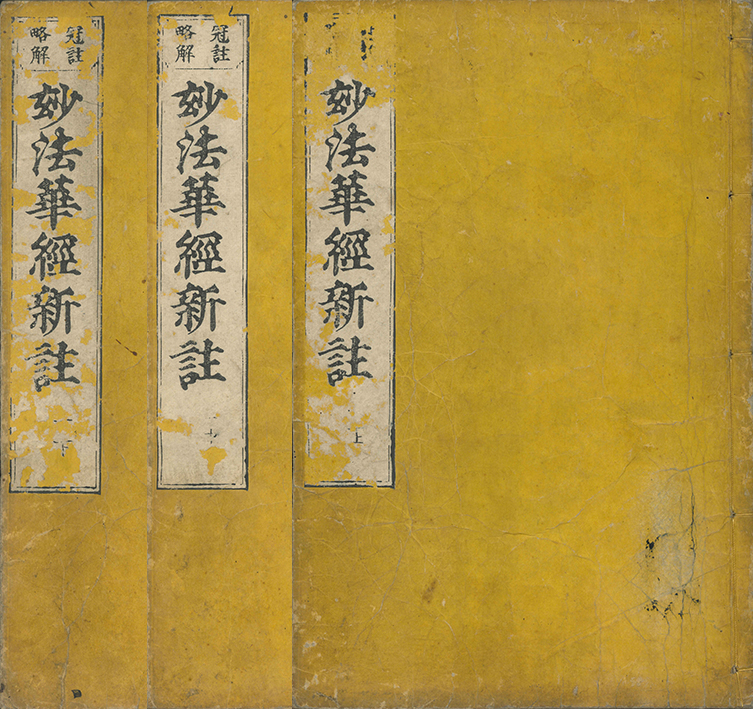 妙法華經新註 上
冠註
略解
妙法華經新註
冠註
略解
妙法華經新註 下